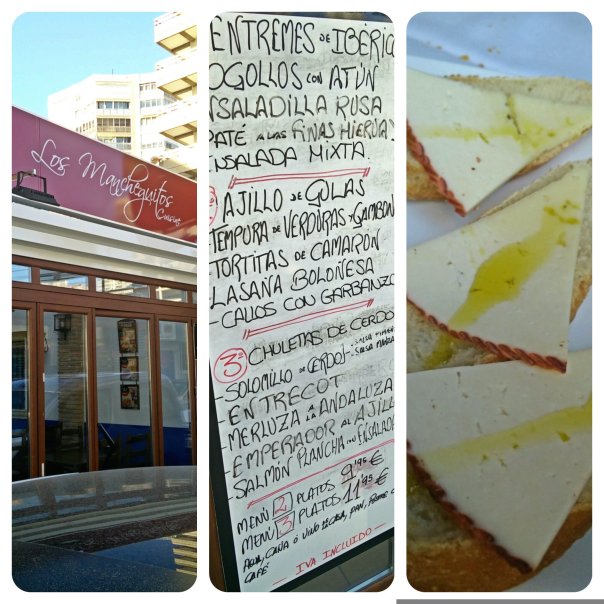 Los Mancheguitos
Cuisine
ENTREMES DE IBÉRIC
OGOLLOS CON ATÚN
NSALADILLA RUSA
PATÉ A LAS FINAS HIERVAS
NSALADA MIXTA.
AJILLO DE GULAS
TEMPURA DE VERDURAS Y GAMBON
TORTITAS DE CAMARÓN
LASAÑA BOLOÑESA
- CALLOS CON GARBANZO
3º CHULETAS DE CERDO
- SOLOMILLO DE CERDO!- SALSA
SALSA
- ENTRECOT
MERLUZA A LA ANDALUZA
- EMPERADOR AL AJILL
- SALMÓN PLANCHA CON ENSALADA
MENÚ 2 PLATOS 9'95 €
MENÚ 3 PLATOS 11'95 €
AGUA, CAÑA Ó VINO DE CASA, PAN, POSTRE O
CAFÉ
— IVA INCLUIDO —